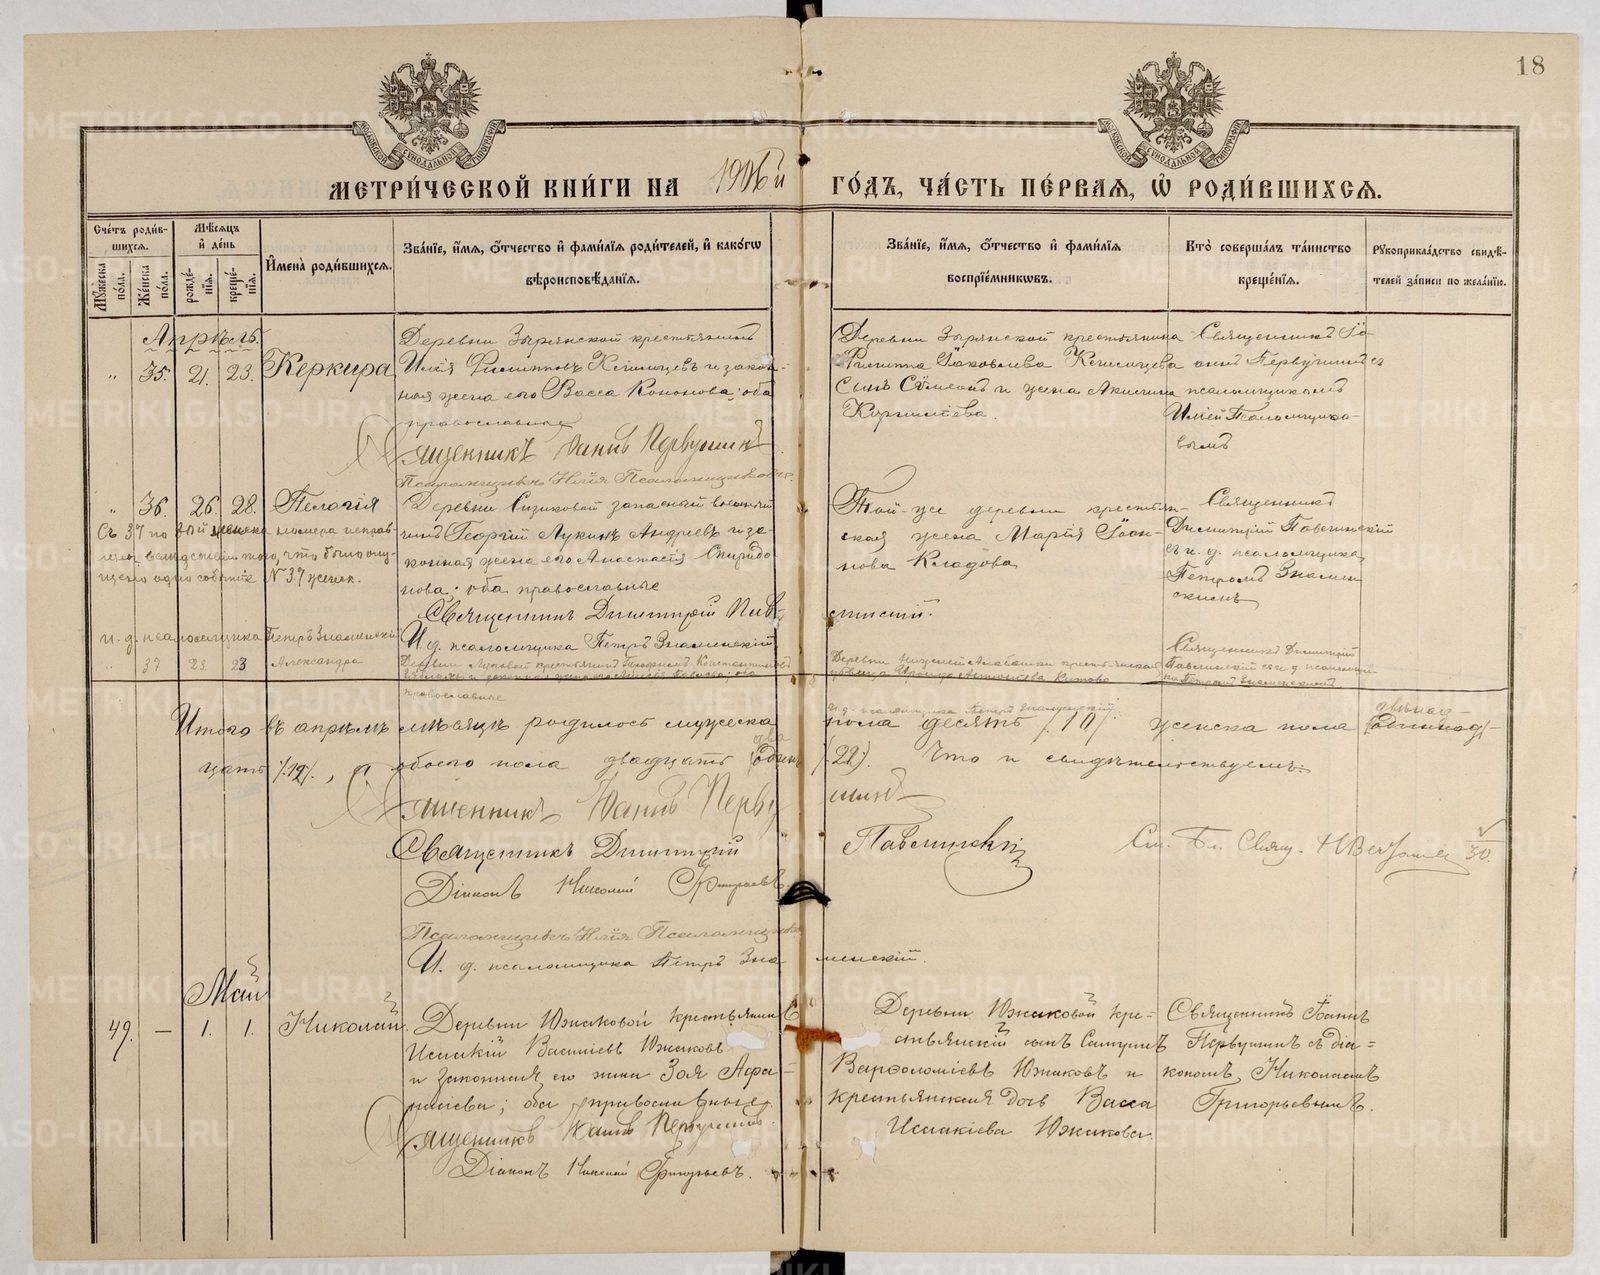 18
МЕТРИ́ЧЕСКОЙ КНИ́ГИ НА 1906й ГО́ДЪ, ЧА́СТЬ ПЕ́РВАЯ, Ѡ РОДИ́ВШИХСѦ.
Сче́тъ роди́в-
шихсѧ.
Мѣ́сѧцъ
и де́нь
Му́жеска по́ла.
Же́нска по́ла.
рожде́-
нїѧ.
креще́-
нїѧ.
И҆мена̀ роди́вшихсѧ.
Зва́нїе, и҆́мѧ, о҆́тчество и҆ фами́лїѧ роди́телей, и҆ како́гѡ
вѣроисповѣ́данїѧ.
Зва́нїе, и҆́мѧ, о҆́тчество и҆ фами́лїѧ
воспрїе́мникѡвъ.
Кто̀ соверша́лъ та́инство
креще́нїѧ.
Рꙋкоприкла́дство свидѣ́-
телей за́писи по жела́нїю.
Апрѣль.
" 35. 21. 23. Керкира
Деревни Зырянской крестьянинъ
Илія Филиповъ и закон-
ная жена его Васса Кононова; оба
православные
Священникъ Іоаннъ Первушинъ
Псаломщикъ Илія Псаломщиковъ.
Деревни Зырянской крестьянина
Филиппа Іаковлева
сынъ Сѵмеонъ и жена
Священникъ Іо-
аннъ Первушинъ съ
псаломщикомъ
Иліей Псаломщико-
вымъ
" 36. 26. 28. Пелагія
Деревни запасный
чинъ Георгій Лукинъ Андреевъ и за-
конная жена его Анастасія Спиридо
нова; оба православные
Священникъ Димитрій Пав-
линскій.
И. д. псаломщика Петръ Знаменскій
Той-же деревни крестьян-
ская жена Марія Іоан-
нова Кладова
Священникъ
Димитрій Павлинскій
съ и. д. псаломщика
Петромъ Знамен
скимъ
Съ 37 по номера исправ-
лены вслѣдствіи того, что было опу-
щено одно событіе № 37 женск.
и. д. псаломщика Петръ Знаменскій
" 37 23 Александра
Деревни крестьянинъ
православные
Деревни крестьянская
дѣвица
Священникъ Димитрій
Павлинскій съ и. д. псаломщи
ка Петромъ Знаменскимъ
и. д. псаломщика Петръ Знаменскій
Итого въ апрѣлѣ мѣсяцѣ родилось мужеска пола десять /10/. женска пола двѣнад- (одиннад)-
цать /12/., а обоего пола двадцать два (одинъ) (22). Что и свидѣтельствуемъ:
Священникъ Іоаннъ Перву шинъ
Священникъ Димитрій Павлинскій
Діаконъ Николай Григорьевъ
Псаломщикъ Илія Псаломщиковъ
И. д. псаломщика Петръ Зна- менскій.
Май
49. — 1. 1. Николай
Деревни Южаковой крестьянинъ
Исаакій Васильевъ Южаковъ
и законная его жена Зоя Афа-
насіева; оба православные
Священникъ Іоаннъ Первушинъ.
Діаконъ Николай Григорьевъ.
Деревни Южаковой кре-
стьянскій сынъ Самуилъ
Варфоломіевъ Южаковъ и
крестьянская дочь Васса
Исаакіева Южакова.
Священникъ Іоаннъ
Первушинъ съ діа-
кономъ Николаемъ
Григорьевымъ.